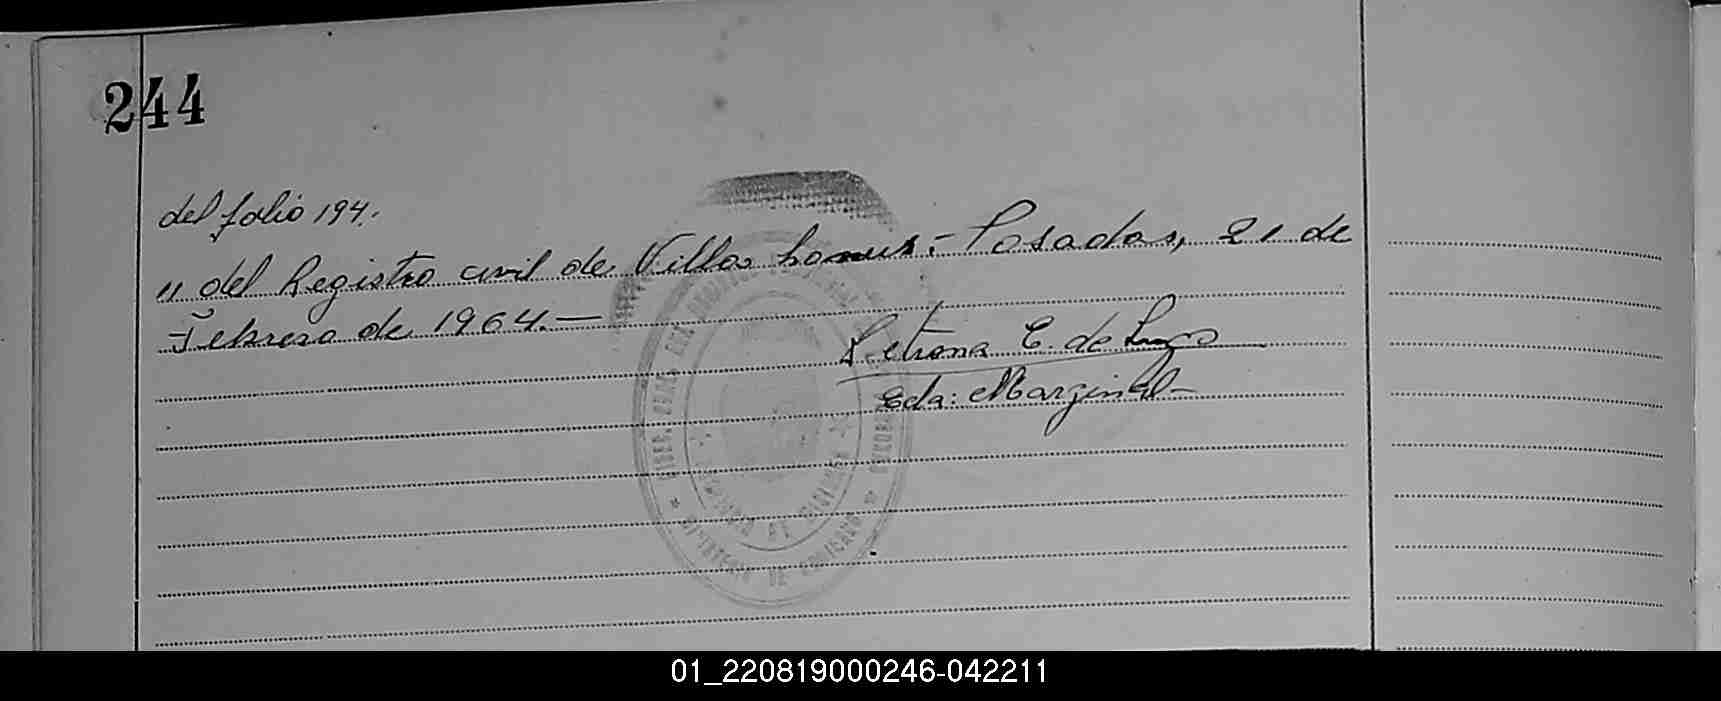 244
del folio 194.
" del Registro civil de Villa Lanus.- Posadas, 21 de
Febrero de 1964.—
Petrona E. de Lugo
Eda: Marginal-
01_220819000246-042211